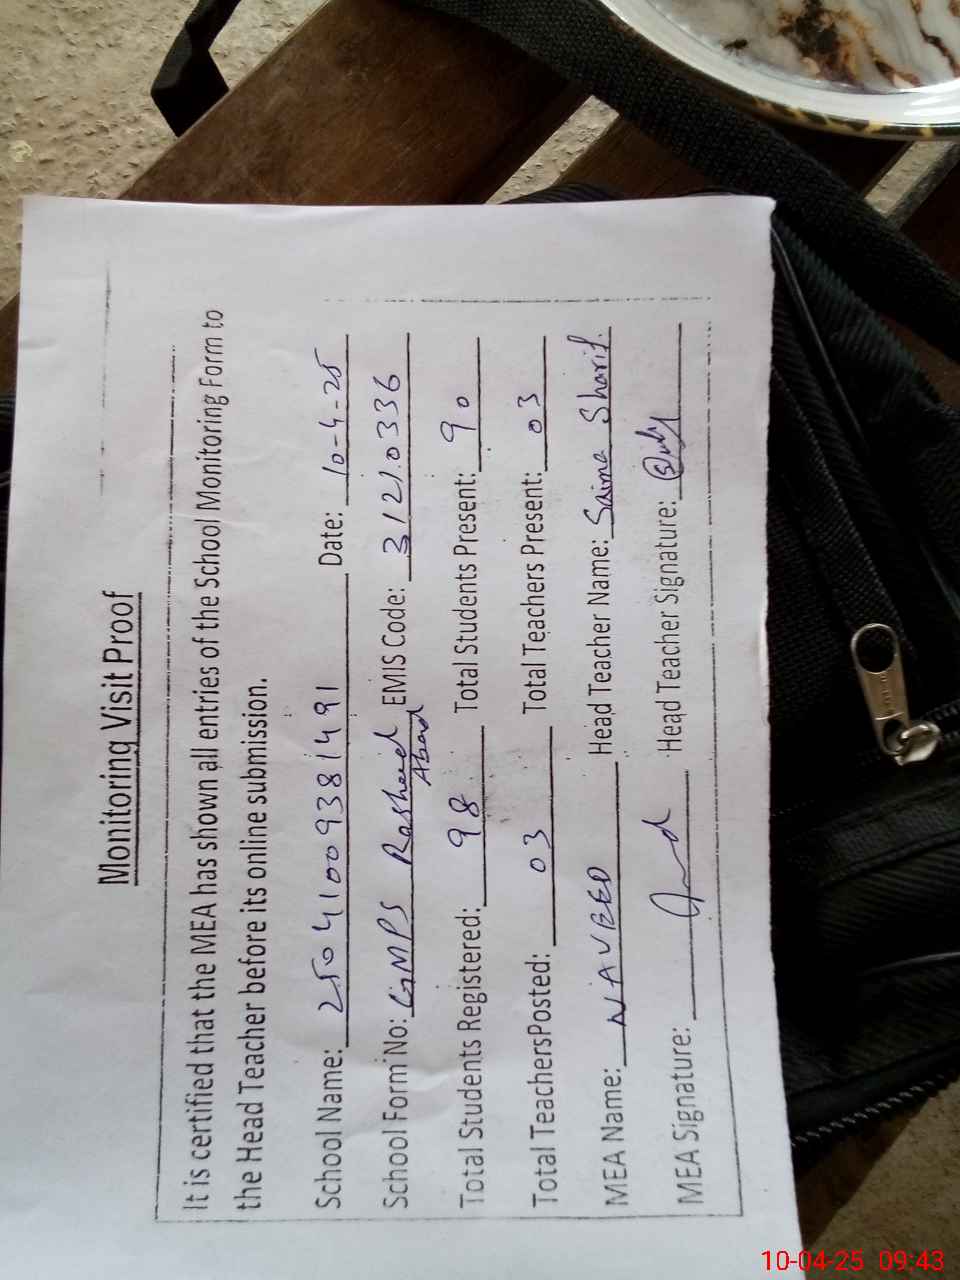 Monitoring Visit Proof
It is certified that the MEA has shown all entries of the School Monitoring Form to
the Head Teacher before its online submission.
School Name: 25041009381491 Date: 10-4-25
School Form No: GMPS Rasheed Abad EMIS Code: 31210336
Total Students Registered: 98 Total Students Present: 90
Total TeachersPosted: 03 Total Teachers Present: 03
MEA Name: NAVEED Head Teacher Name: Saima Sharif.
MEA Signature: Head Teacher Signature:
10-04-25 09:43